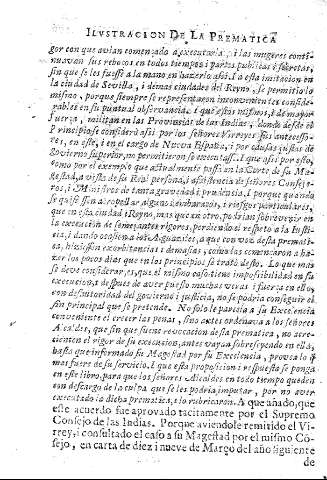 ILVSTRACION DE LA PREMATICA
gor con que avian començado a executarla, i las mugeres conti-
nuavan sus rebozos en todos tiempos i partes publicas i secretas,
sin que se les fuesse a la mano en hazerlo assi. I a esta imitacion en
la ciudad de Sevilla, i demas ciudades del Reyno, se permitio lo
mismo, porque siempre se representaron inconvenientes conside-
rables en su puntual observancia. I que estos mismos, i de mayor
fuerça, militan en las Provincias de las Indias, donde desde el
Principio se consideró assi por los señores Virreyes sus antecesso-
res, en este, i en el cargo de Nueva España, i por causas justas de
govierno superior, no permitieron se executasse. I que assi por esto,
como por el exemplo que actualmente passa en la Corte de su Ma-
gestad, a vista de su Real persona, i assistencia de señores Conseje-
ros, i Ministros de tanta gravedad i prudencia. I porque quando
se quisiessen atropellar algunos embaraços, i riesgos particulares,
que en esta ciudad i Reyno, mas que en otro, podrian sobrevenir en
la execucion de semejantes rigores, perdiendo el respeto a la Iusti-
cia, i dando ocasion a los Alguaziles, a que con voz desta premati-
ca, hiziessen exorbitancias i demasias, como las començaron a ha-
zer los pocos dias que en los principios se trató desto. Lo que mas
se deve considerar, es, que el mismo caso tiene impossibilidad en su
execucion, i despues de aver puesto muchas veras i fuerça en ello,
con desautoridad del govierno i justicia, no se podria conseguir el
fin principal que se pretende. No solo le parecia a su Excelencia
conveniente el crecer las penas, sino antes ordenava a los señores
Alcaldes, que sin que suene revocacion desta prematica, no avre-
cienten el rigor de su execucion, antes vayan sobreseyendo en ella,
hasta que informado su Magestad por su Excelencia, provea lo q
mas fuere de su servicio. I que esta proposicion i respuesta se ponga
en este libro, para que los señores Alcaldes en todo tiempo queden
con descargo de la culpa que se les podria imputar, de no aver
executado la dicha prematica, i lo rubricaron. A que añado, que
este acuerdo fue aprovado tacitamente por el Supremo
Consejo de las Indias. Porque aviendole remitido el Vi-
rrey, i consultado el caso a su Magestad por el mismo Co-
sejo, en carta de diez i nueve de Março del año siguiente
de